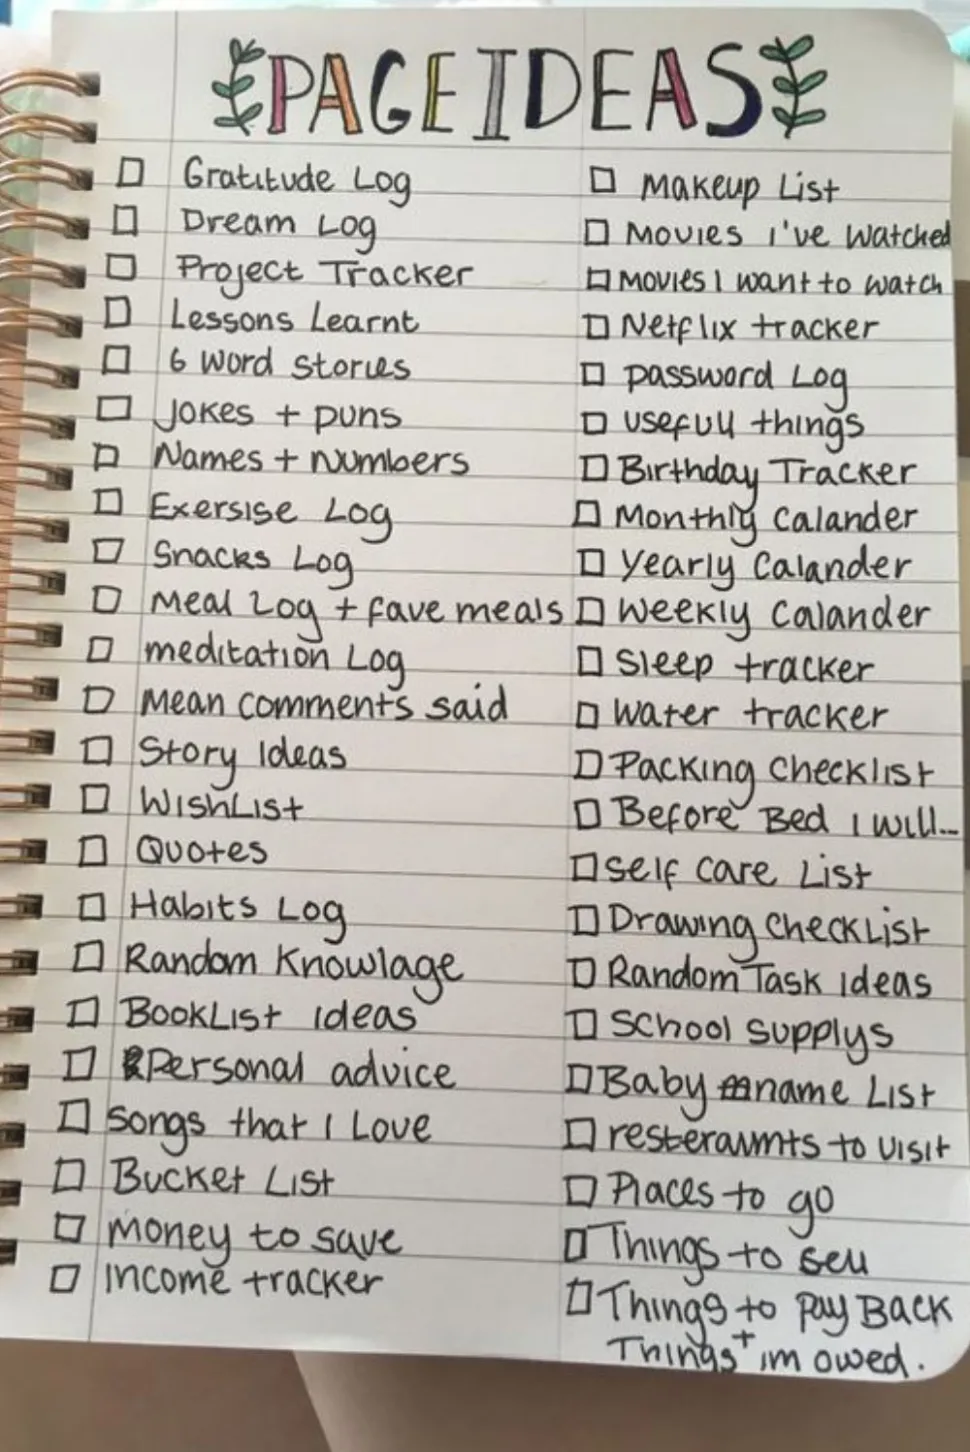 PAGE IDEAS
Gratitude Log
Dream Log
Project Tracker
Lessons Learnt
6 word stories
Jokes + puns
Names + numbers
Exersise Log
Snacks Log
Meal Log + fave meals
meditation Log
Mean comments said
Story Ideas
WishList
Quotes
Habits Log
Random Knowlage
BookList ideas
Personal advice
songs that I Love
Bucket List
money to save
income tracker
Makeup List
Movies I've watched
Movies I want to watch
Netflix tracker
password Log
usefull things
Birthday Tracker
Monthly Calander
Yearly Calander
Weekly Calander
Sleep tracker
water tracker
Packing Checklist
Before Bed I will...
self care List
Drawing CheckList
Random Task ideas
School supplys
Baby name List
resteraunts to visit
Places to go
Things to sell
Things to pay Back
+ Things im owed.